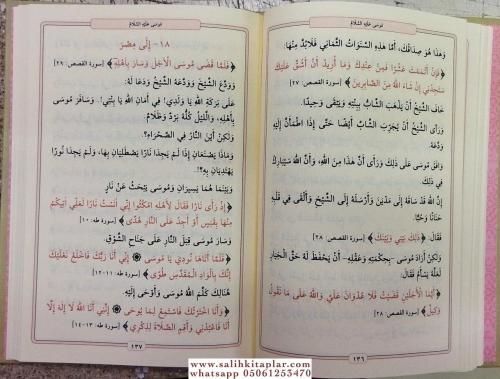 مُوسَى عَلَيْهِ السَّلَامُ
وَهَذَا هُوَ صَدَاقُكَ، أَمَّا هَذِهِ السَّنَوَاتُ الثَّمَانِي فَلَابُدَّ مِنْهَا:
﴿فَإِنْ أَتْمَمْتَ عَشْرًا فَمِنْ عِنْدِكَ وَمَا أُرِيدُ أَنْ أَشُقَّ عَلَيْكَ
سَتَجِدُنِي إِنْ شَاءَ اللهُ مِنَ الصَّابِرِينَ﴾ [سورة القصص: ٢٧]
خَافَ الشَّيْخُ أَنْ يَذْهَبَ الشَّابُّ بِبِنْتِهِ وَيَبْقَى وَحِيدًا.
وَرَأَى الشَّيْخُ أَنْ يُجَرِّبَ الشَّابَّ أَيْضًا حَتَّى إِذَا اطْمَأَنَّ إِلَيْهِ
وَدَّعَهُ.
وَافَقَ مُوسَى عَلَى ذَلِكَ وَرَأَى أَنَّ هَذَا مِنَ اللهِ، وَأَنَّ اللهَ سَيُبَارِكُ
فِي ذَلِكَ.
إِنَّ اللهَ قَدْ سَاقَهُ إِلَى مَدْيَنَ وَأَرْسَلَهُ إِلَى الشَّيْخِ وَأَلْقَى فِي قَلْبِهِ
حَنَانًا وَحُبًّا.
فَقَالَ: ﴿ذَلِكَ بَيْنِي وَبَيْنَكَ﴾ [سورة القصص: ٢٨]
وَلَكِنْ أَرَادَ مُوسَى –بِحِكْمَتِهِ وَعَقْلِهِ– أَنْ يَحْفَظَ لَهُ حَقَّ الْخِيَارِ
لَعَلَّهُ يَسْأَمُ فَقَالَ:
﴿أَيَّمَا الْأَجَلَيْنِ قَضَيْتُ فَلَا عُدْوَانَ عَلَيَّ وَاللهُ عَلَى مَا نَقُولُ
وَكِيلٌ﴾ [سورة القصص: ٢٨]
١٣٦
مُوسَى عَلَيْهِ السَّلَامُ
١٨ – إِلَى مِصْرَ
﴿فَلَمَّا قَضَى مُوسَى الْأَجَلَ وَسَارَ بِأَهْلِهِ﴾ [سورة القصص: ٢٩]
وَوَدَّعَ الشَّيْخَ وَوَدَّعَهُ الشَّيْخُ وَدَعَا لَهُ:
عَلَى بَرَكَةِ اللهِ يَا وَلَدِي! فِي أَمَانِ اللهِ يَا بِنْتِي!. وَسَافَرَ مُوسَى
بِأَهْلِهِ، وَاللَّيْلُ كُلُّهُ بَرْدٌ وَظَلَامٌ.
وَلَكِنْ أَيْنَ النَّارُ فِي الصَّحْرَاءِ؟.
وَمَاذَا يَصْنَعَانِ إِذَا لَمْ يَجِدَا نَارًا يَصْطَلِيَانِ بِهَا، وَلَمْ يَجِدَا نُورًا
يَهْتَدِيَانِ بِهِ؟.
وَبَيْنَمَا هُمَا يَسِيرَانِ وَمُوسَى يَبْحَثُ عَنْ نَارٍ
﴿إِذْ رَأَى نَارًا فَقَالَ لِأَهْلِهِ امْكُثُوا إِنِّي آنَسْتُ نَارًا لَعَلِّي آتِيكُمْ
مِنْهَا بِقَبَسٍ أَوْ أَجِدُ عَلَى النَّارِ هُدًى﴾ [سورة طه: ١٠]
وَسَارَ مُوسَى قِبَلَ النَّارِ عَلَى جَنَاحِ الشَّوْقِ.
﴿فَلَمَّا أَتَاهَا نُودِيَ يَا مُوسَى ۞ إِنِّي أَنَا رَبُّكَ فَاخْلَعْ نَعْلَيْكَ
إِنَّكَ بِالْوَادِ الْمُقَدَّسِ طُوًى﴾ [سورة طه: ١١-١٢]
هُنَالِكَ كَلَّمَ اللهُ مُوسَى وَأَوْحَى إِلَيْهِ.
﴿وَأَنَا اخْتَرْتُكَ فَاسْتَمِعْ لِمَا يُوحَى ۞ إِنَّنِي أَنَا اللهُ لَا إِلَهَ إِلَّا
أَنَا فَاعْبُدْنِي وَأَقِمِ الصَّلَاةَ لِذِكْرِي﴾ [سورة طه: ١٣-١٤]
١٣٧
www.salihkitaplar.com
whatsapp 05061253470